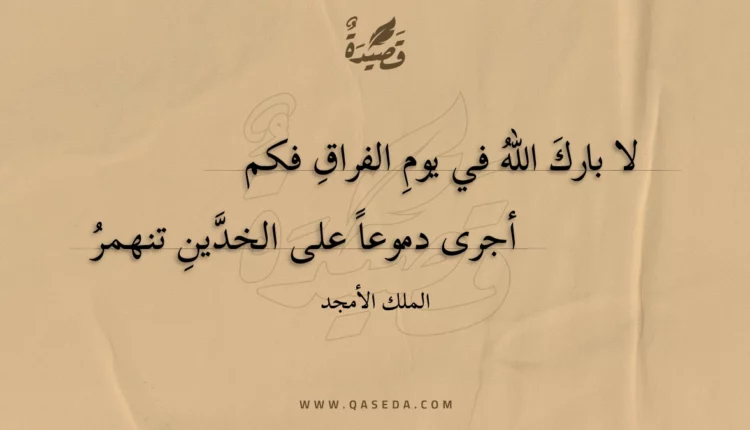 قَصِيْدَةٌ
لا باركَ اللهُ في يومِ الفراقِ فكم
أجرى دموعاً على الخدَّينِ تنهمرُ
الملك الأمجد
WWW.QASEDA.COM